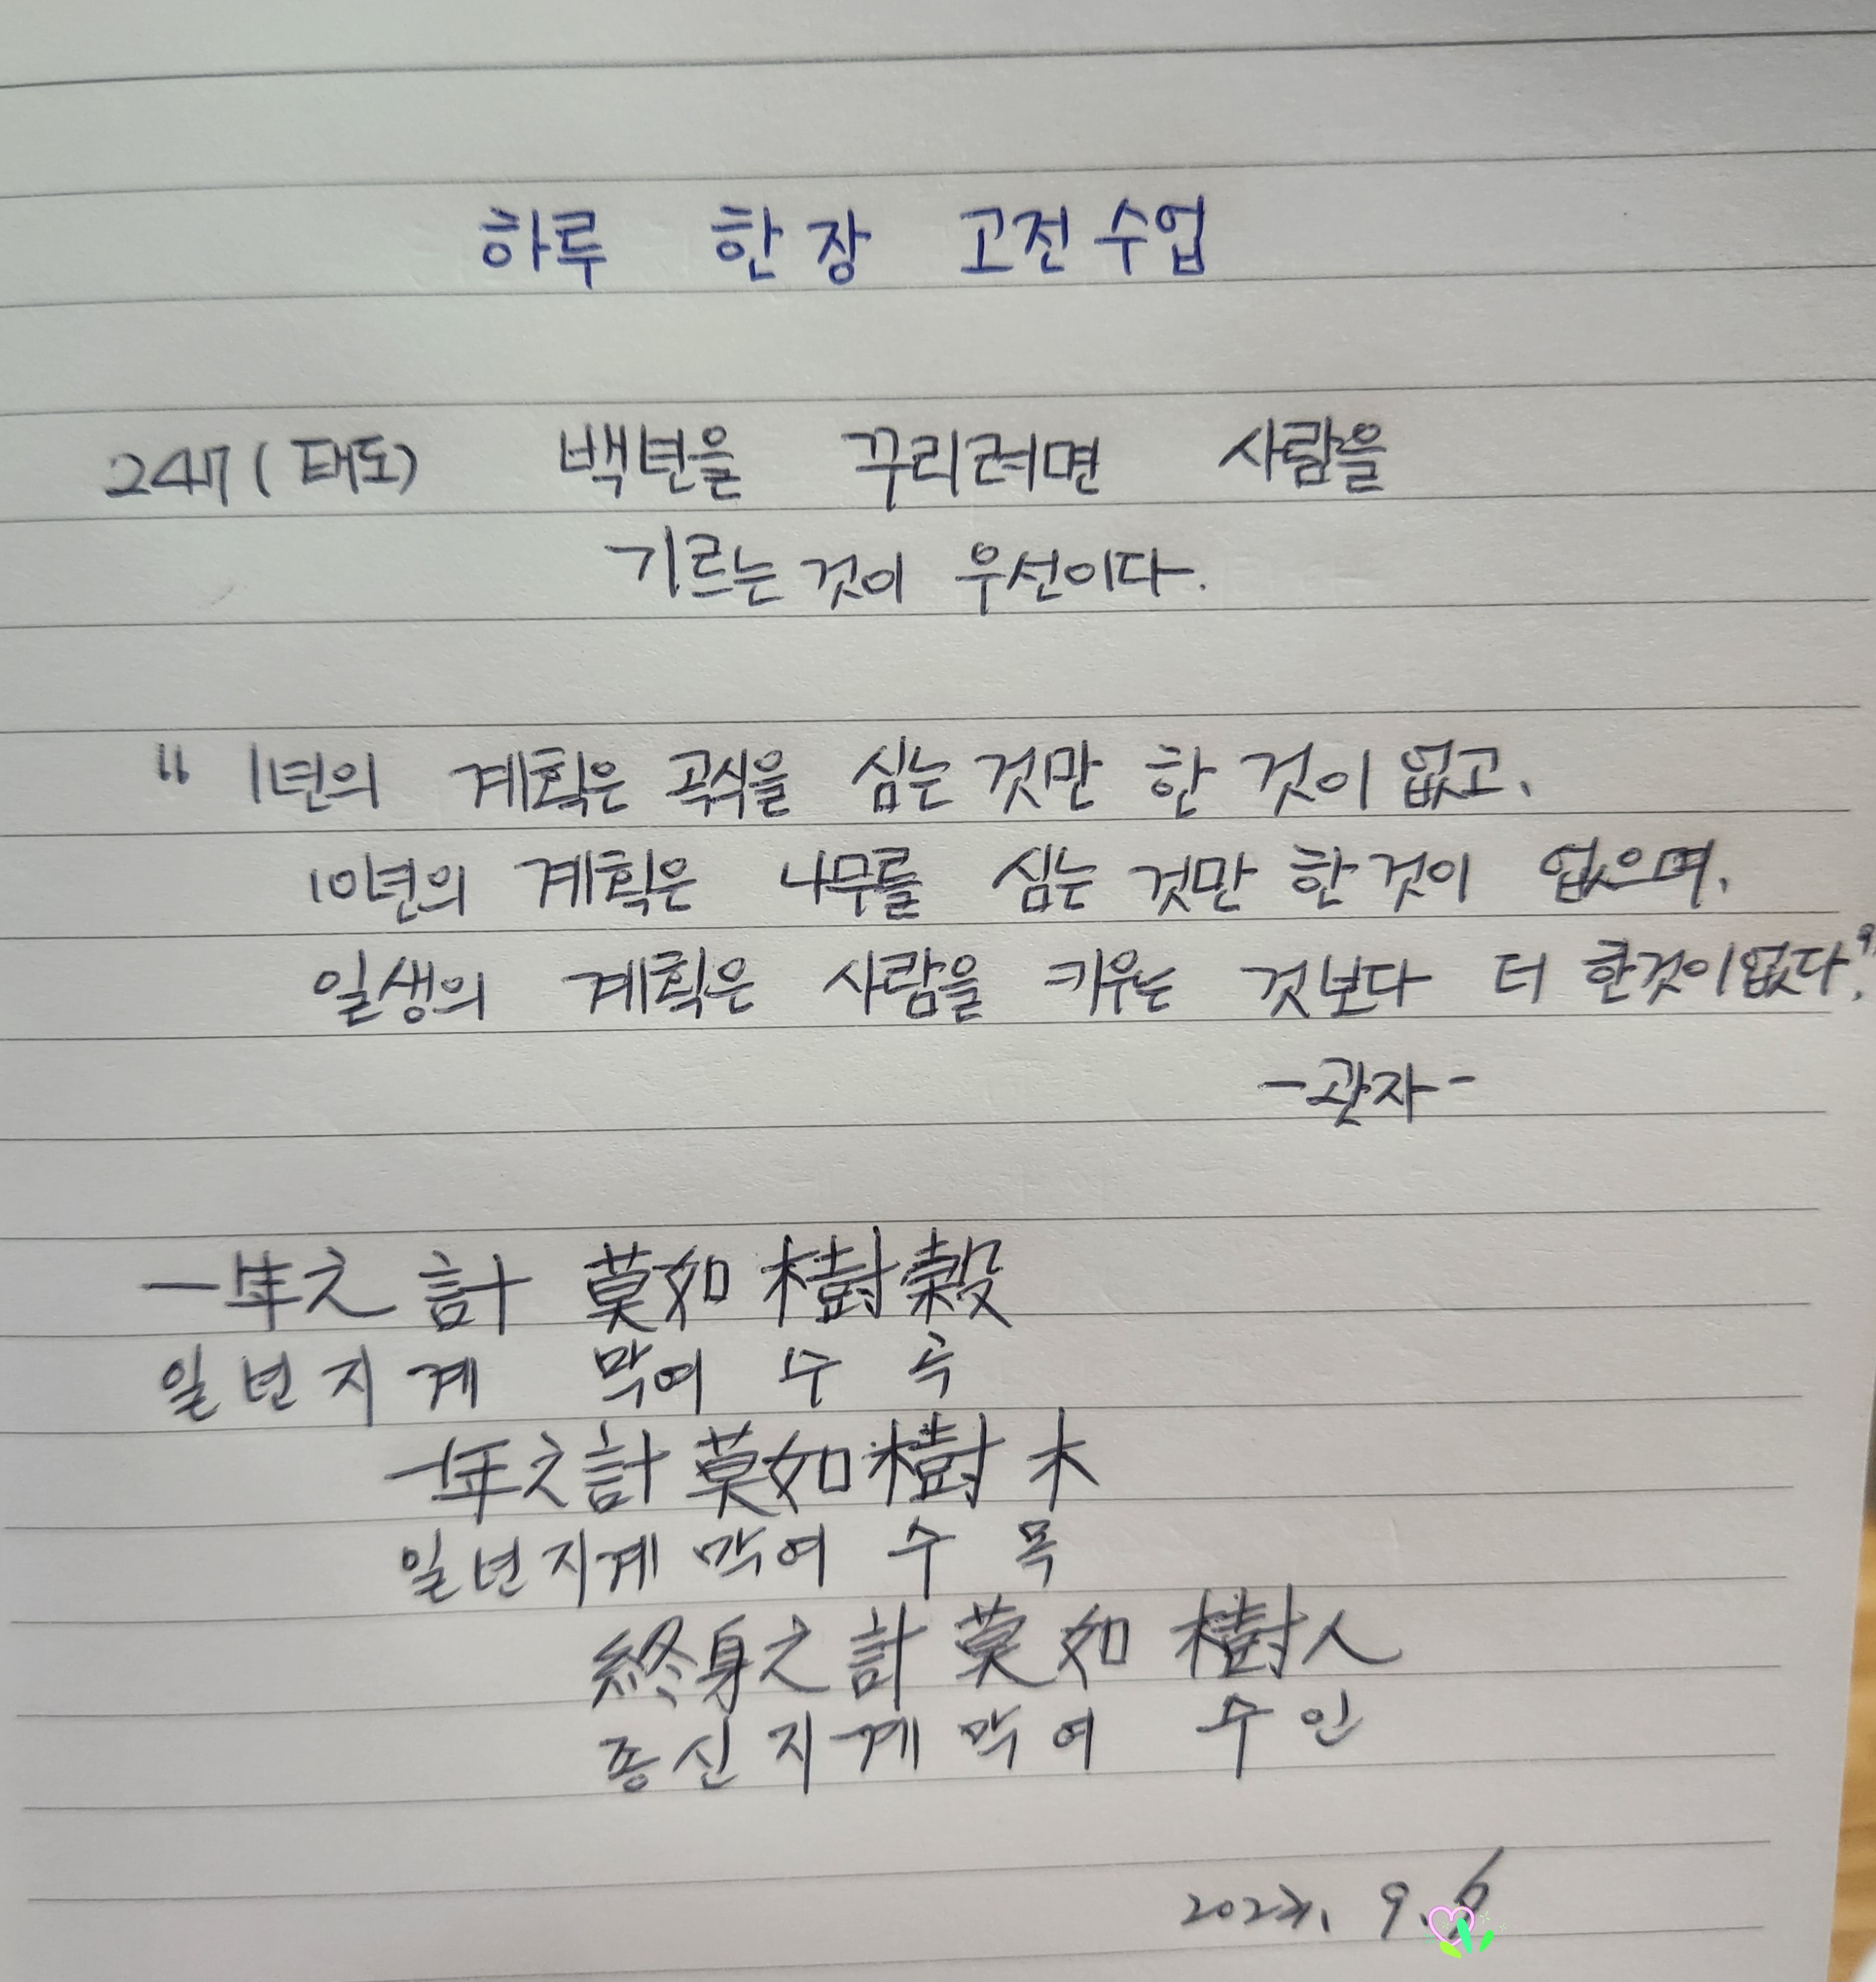 하루 한 장 고전 수업
247 (태도) 백년을 꾸리려면 사람을
기르는 것이 우선이다.
“ 1년의 계획은 곡식을 심는 것만 한 것이 없고,
10년의 계획은 나무를 심는 것만 한 것이 없으며,
일생의 계획은 사람을 키우는 것보다 더 한것이 없다.”
-관자-
一年之計 莫如樹穀
일년지계 막여수곡
一年之計莫如樹木
일년지계막여수목
終身之計莫如樹人
종신지계막여수인
9.